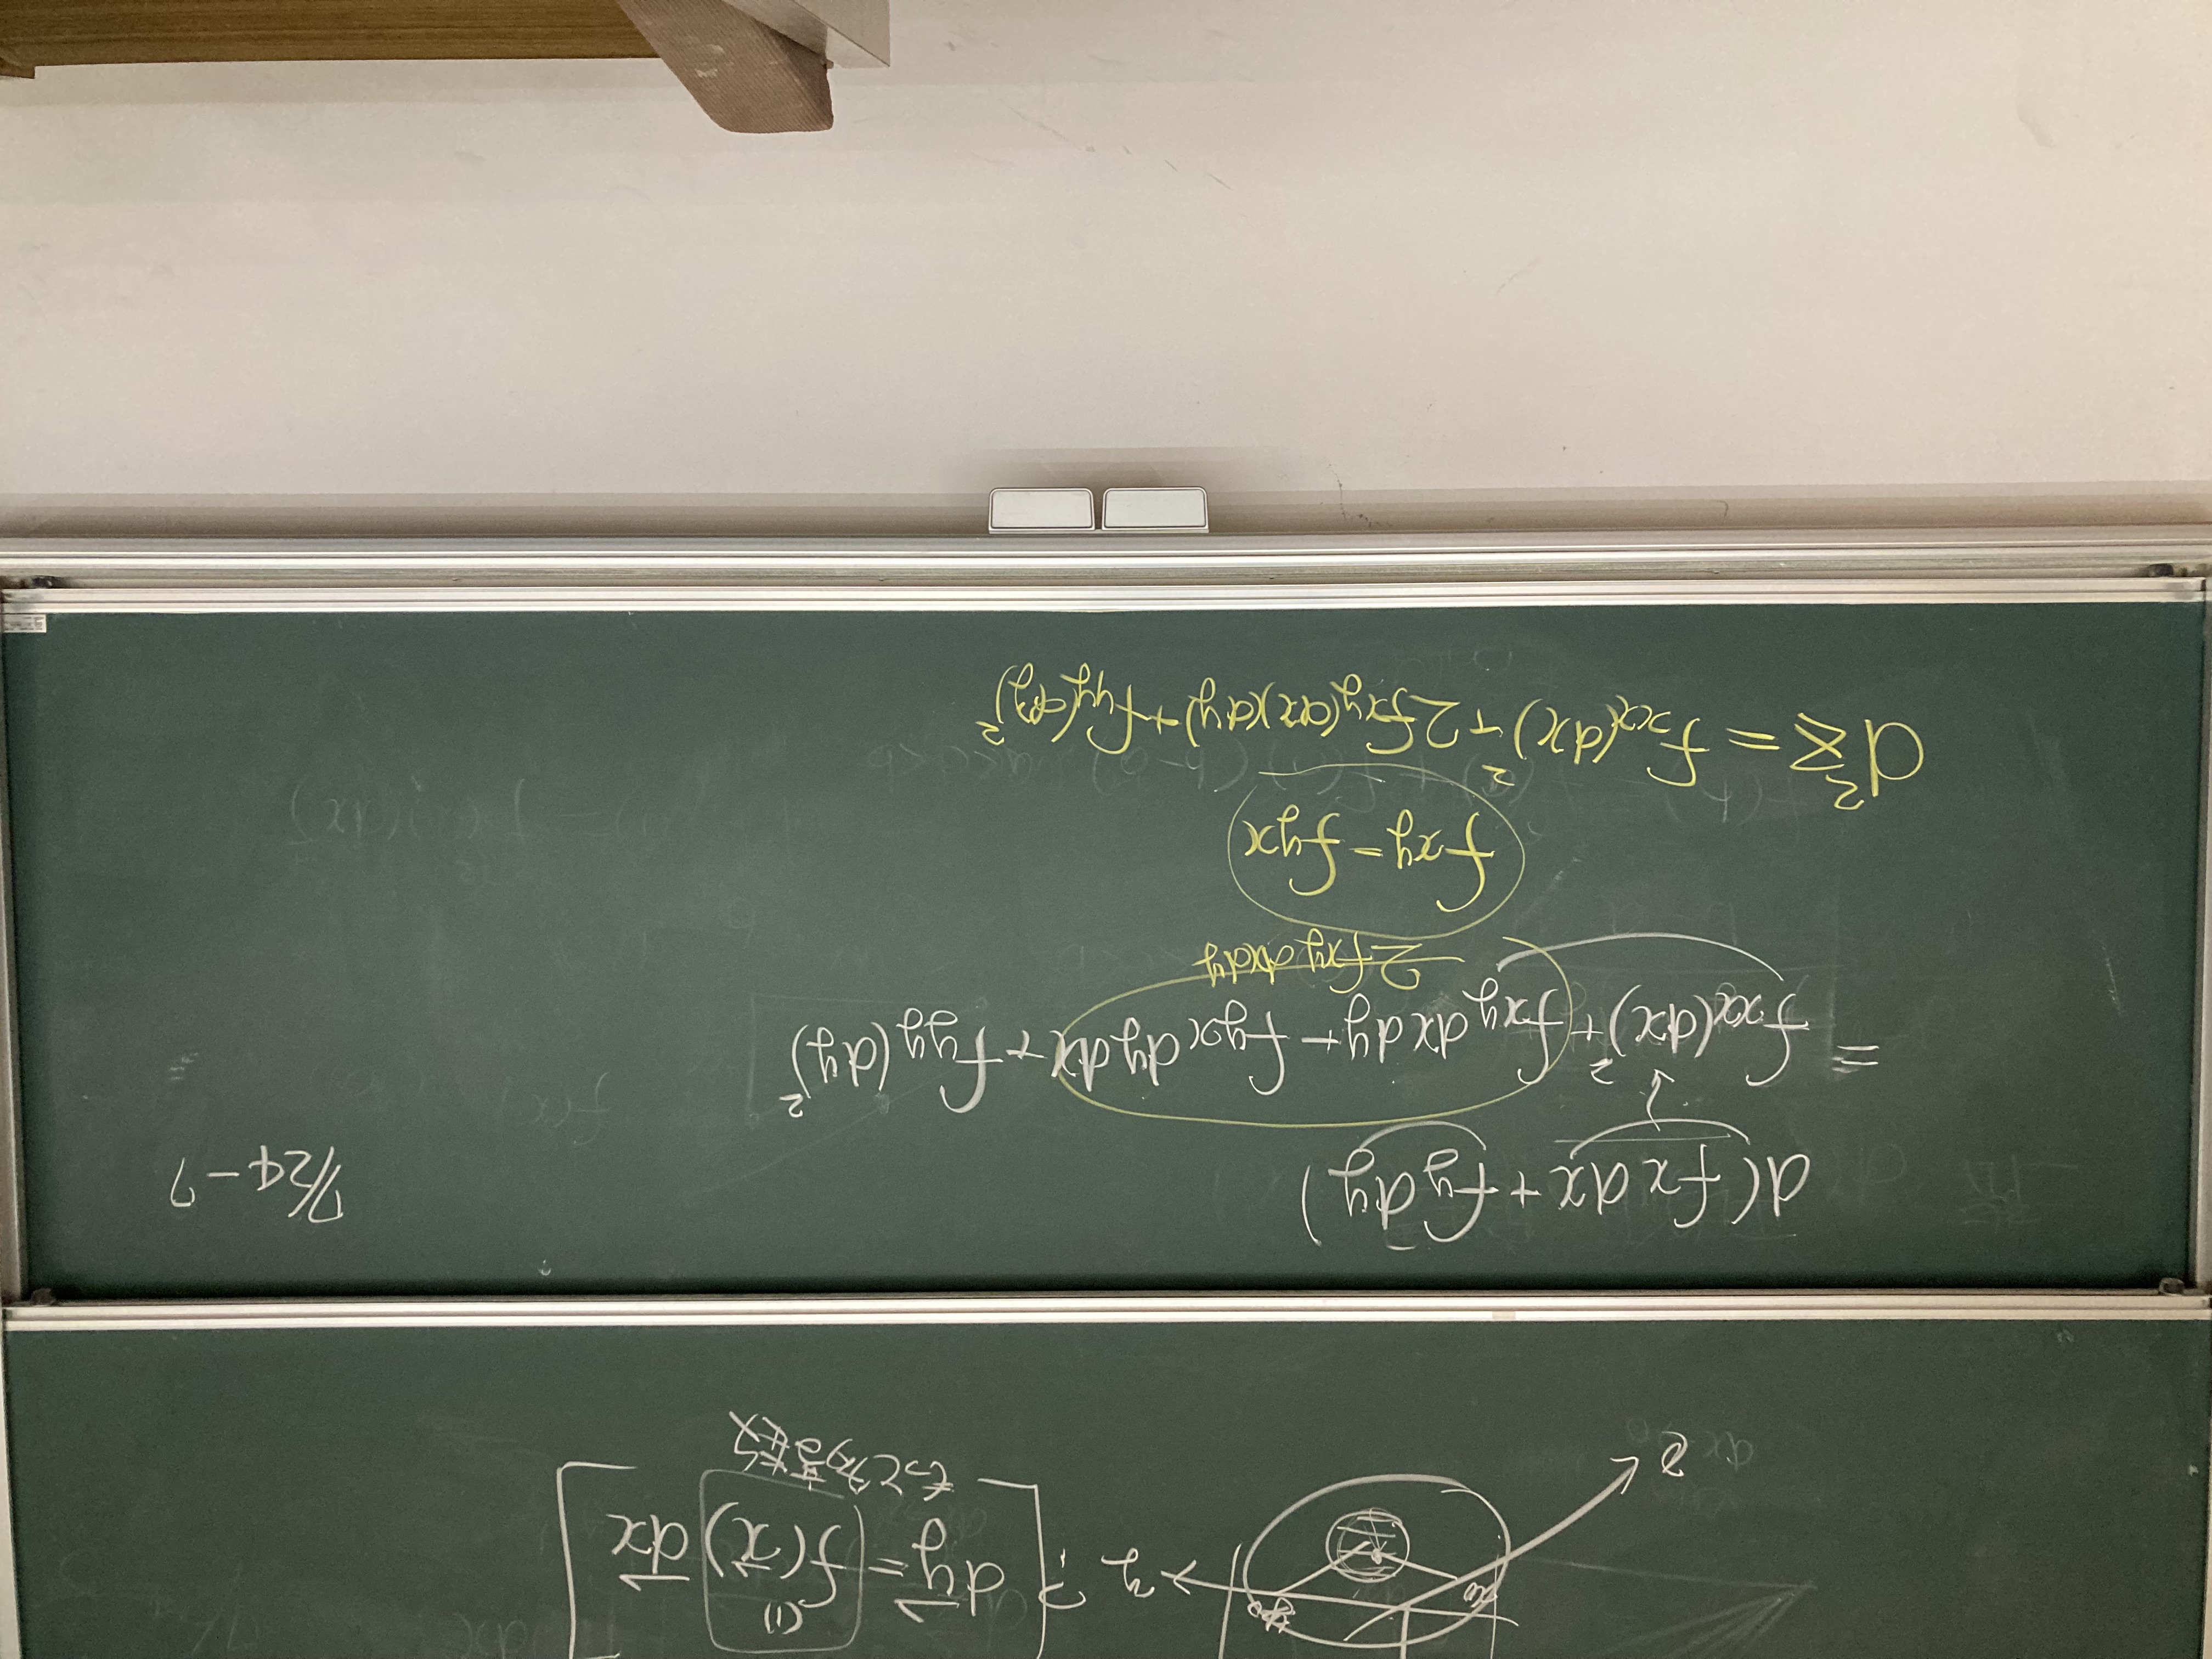 x₀
y₀
y ? [ dy⃗ = f⁽¹⁾(x⃗) dx⃗ ]
もっと多変数
d(fx dx + fy dy)
7/24-7
= fxx(dx)² + fxy dx dy + fyx dy dx + fyy (dy)²
2 fxy dx dy
fxy = fyx
d²z = fxx(dx)² + 2fxy(dx)(dy) + fyy(dy)²